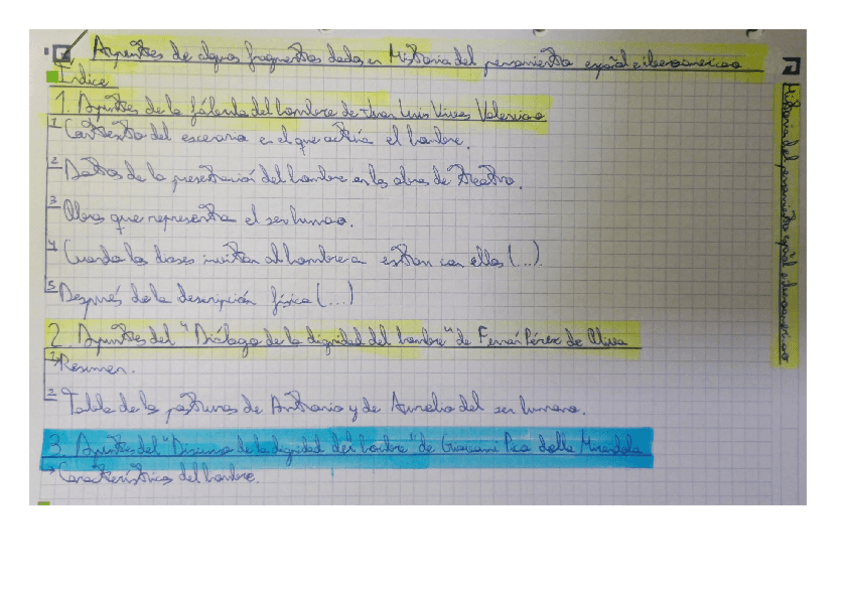 Apuntes de algunos fragmentos dados en Historia del pensamiento español e iberoamericano
Índice
1. Apuntes de la fábula del hombre de Juan Luis Vives Valenciano
1 Contexto del escenario en el que actúa el hombre.
2 Datos de la presentación del hombre en las obras de teatro.
3 Obras que representa el ser humano.
4 Cuando los dioses invitan al hombre a estar con ellos (...)
5 Después de la descripción física (...)
2. Apuntes del "Diálogo de la dignidad del hombre" de Fernán Pérez de Oliva
1 Resumen.
2 Tabla de las posturas de Antonio y de Aurelio del ser humano.
3. Apuntes del "Discurso de la dignidad del hombre" de Giovanni Pico della Mirandola
→ Características del hombre.
Historia del pensamiento español e iberoamericano